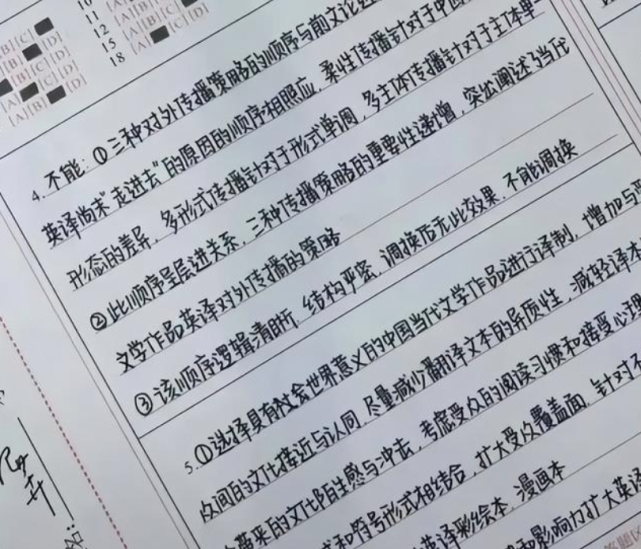 10
11
12
15
18
[A] [C] [D]
[A] [B] [D]
4. 不能: ①三种对外传播策略的顺序与前文论述
英译尚未"走进去"的原因的顺序相照应, 柔性传播针对于中国
形态的差异, 多形式传播针对于形式单调, 多主体传播针对于主体单一
②此顺序呈层进关系, 三种传播策略的重要性递增, 突出阐述了当代
文学作品英译对外传播的策略
③该顺序逻辑清晰, 结构严密, 调换后无此效果, 不能调换
5. ①选择具有社会世界意义的中国当代文学作品进行译制, 增加与
众间的文化接近与认同, 尽量减少翻译文本的异质性, 减轻译本
带来的文化陌生感与冲击, 考虑受众的阅读习惯和接受心理
式和符号形式相结合, 扩大受众覆盖面, 针对不
英译彩绘本, 漫画本
影响力扩大英译